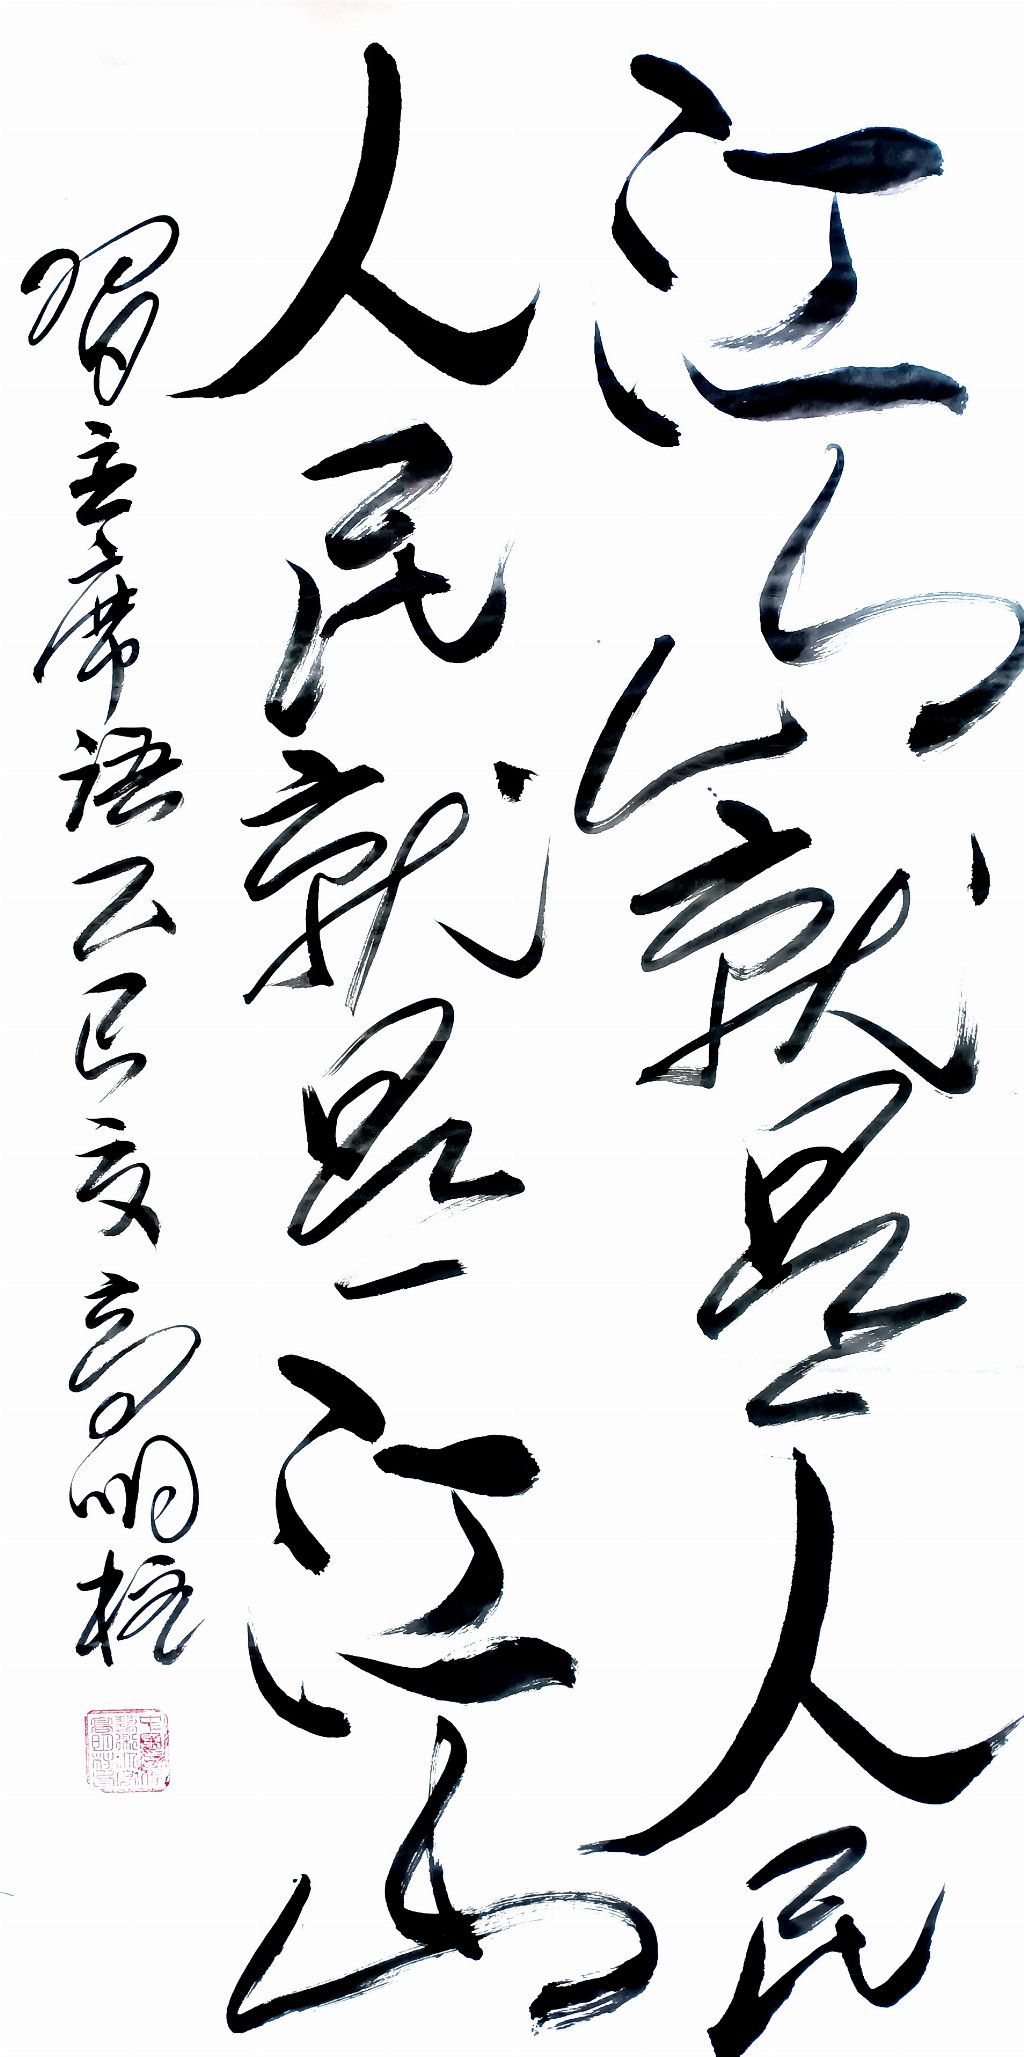 江山就是人民
人民就是江山
习主席语 乙巳夏 高明柱